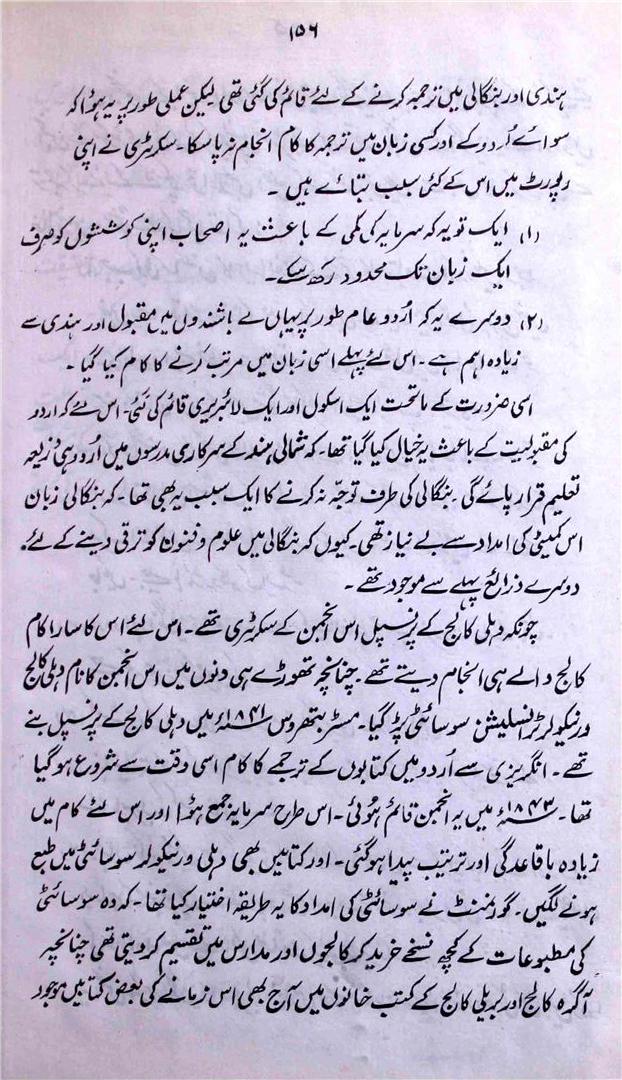 ۱۵۶
ہندی اور بنگالی میں ترجمہ کرنے کے لئے قائم کی گئی تھی لیکن عملی طور پر یہ ہوا کہ
سوائے اُردو کے اور کسی زبان میں ترجمہ کا کام انجام نہ پا سکا۔ سکرٹری نے اپنی
رپورٹ میں اس کے کئی سبب بتائے ہیں ۔
(۱) ایک تو یہ کہ سرمایہ کی کمی کے باعث یہ اصحاب اپنی کوششوں کو صرف
ایک زبان تک محدود رکھ سکے۔
(۲) دوسرے یہ کہ اُردو عام طور پر یہاں کے باشندوں میں مقبول اور ہندی سے
زیادہ اہم ہے ۔ اس لئے پہلے اسی زبان میں مرتب کرنے کا کام کیا گیا ۔
اسی ضرورت کے ماتحت ایک اسکول اور ایک لائبریری قائم کی گئی۔ اس لئے کہ اردو
کی مقبولیت کے باعث یہ خیال کیا گیا تھا۔ کہ شمالی ہند کے سرکاری مدرسوں میں اُردو ہی ذریعہ
تعلیم قرار پائے گی ۔ بنگالی کی طرف توجّہ نہ کرنے کا ایک سبب یہ بھی تھا ۔ کہ بنگالی زبان
اس کمیٹی کی امداد سے بے نیاز تھی۔ کیوں کہ بنگالی میں علوم و فنون کو ترقی دینے کے لئے
دوسرے ذرائع پہلے سے موجود تھے ۔
چونکہ دہلی کالج کے پرنسپل اس انجمن کے سکرٹری تھے ۔ اس لئے اس کا سارا کام
کالج والے ہی انجام دیتے تھے ۔ چنانچہ تھوڑے ہی دنوں میں اس انجمن کا نام دہلی کالج
ورنیکولر ٹرانسلیشن سوسائٹی پڑ گیا۔ مسٹر بتھروس ۱۸۴۱ء میں دہلی کالج کے پرنسپل بنے
تھے ۔ انگریزی سے اُردو میں کتابوں کے ترجمے کا کام اسی وقت سے شروع ہو گیا
تھا ۔ ۱۸۴۳ء میں یہ انجمن قائم ہوئی ۔ اس طرح سرمایہ جمع ہوا اور اس لئے کام میں
زیادہ باقاعدگی اور ترتیب پیدا ہوگئی ۔ اور کتابیں بھی دہلی ورنیکولر سوسائٹی میں طبع
ہونے لگیں ۔ گورنمنٹ نے سوسائٹی کی امداد کا یہ طریقہ اختیار کیا تھا ۔ کہ وہ سوسائٹی
کی مطبوعات کے کچھ نسخے خرید کر کالجوں اور مدارس میں تقسیم کر دیتی تھی چنانچہ
آگرہ کالج اور بریلی کالج کے کتب خانوں میں آج بھی اس زمانے کی بعض کتابیں موجود